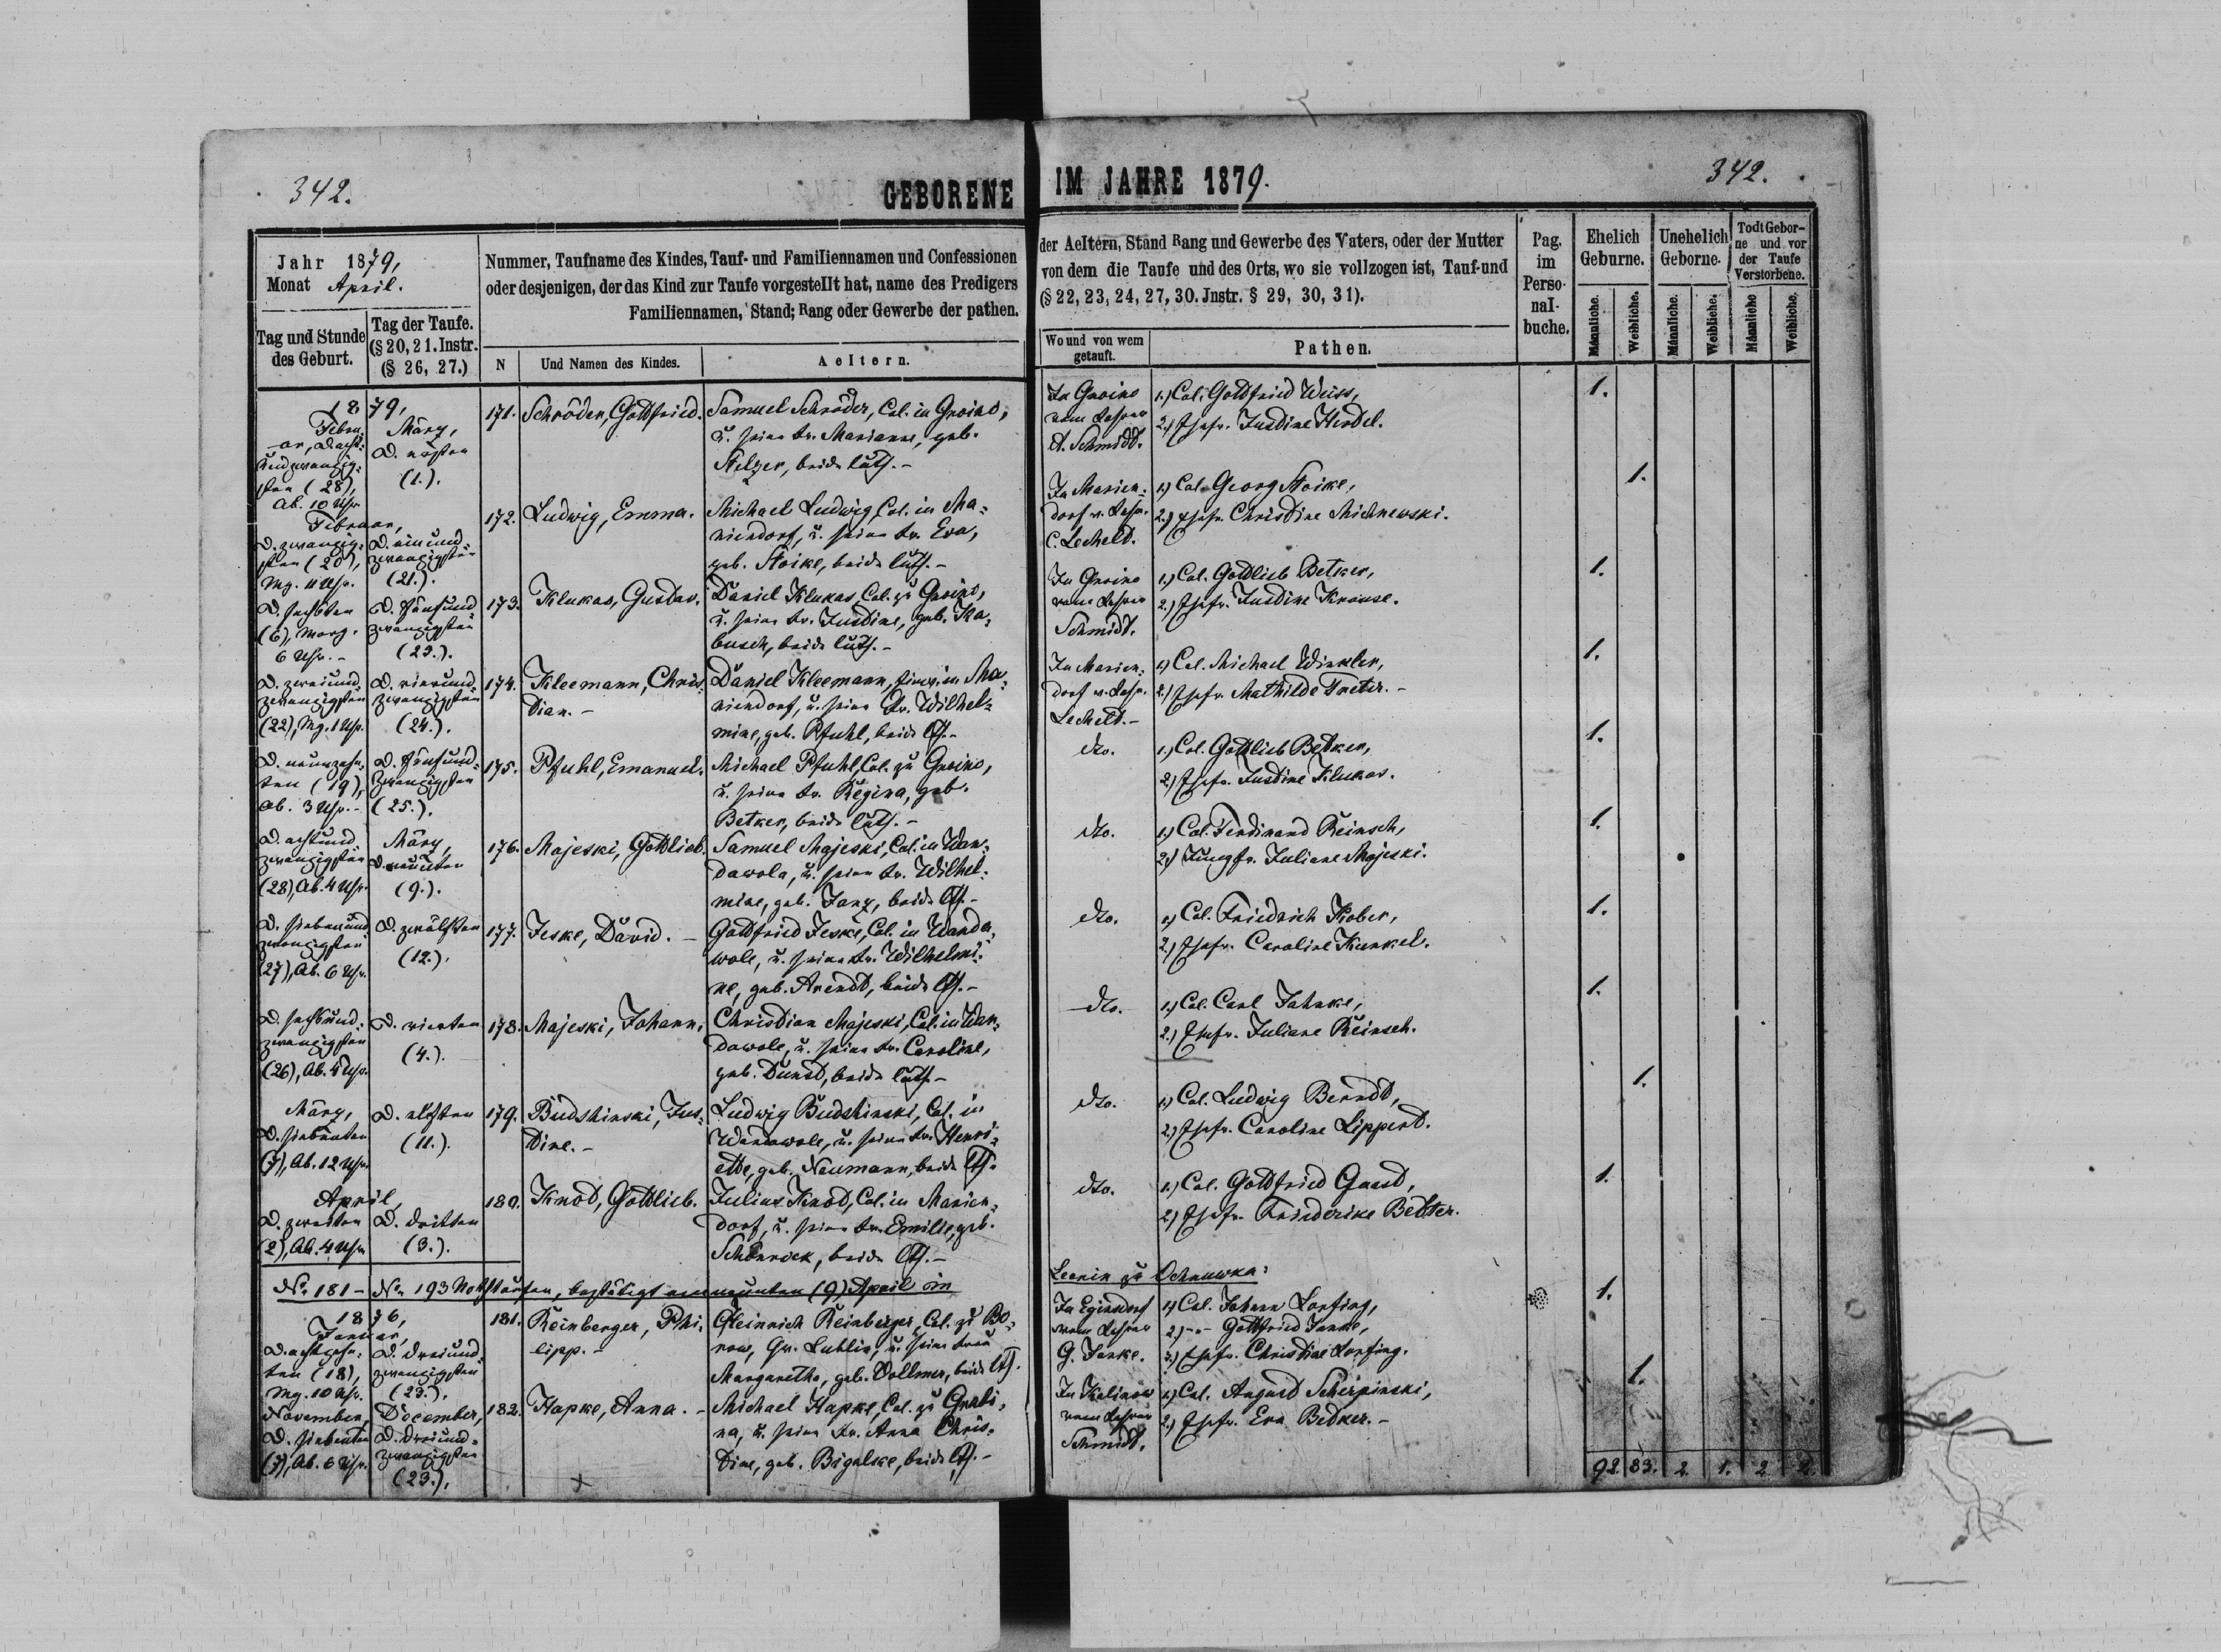 342.
GEBORENE IM JAHRE 1879.
342.
Jahr 1879,
Monat April.
Tag und Stunde
des Geburt.
Tag der Taufe.
(§ 20, 21. Instr.
(§ 26, 27.)
Nummer, Taufname des Kindes, Tauf- und Familiennamen und Confessionen
oder desjenigen, der das Kind zur Taufe vorgestellt hat, name des Predigers
Familiennamen, Stand; Rang oder Gewerbe der pathen.
N
Und Namen des Kindes.
Aeltern.
der Aeltern, Stand Rang und Gewerbe des Vaters, oder der Mutter
von dem die Taufe und des Orts, wo sie vollzogen ist, Tauf-und
(§ 22, 23, 24, 27, 30. Jnstr. § 29, 30, 31).
Wo und von wem
getauft.
Pathen.
Pag.
im
Perso-
nal-
buche.
Ehelich
Geburne.
Unehelich
Geborne.
Todt Gebor-
ne und vor
der Taufe
Verstorbene.
Männliche.
Weibliche.
Männliche.
Weibliche.
Männliche
Weibliche.
1879,
Febru-
ar, D. acht-
undzwanzig-
sten (28),
Ab. 10 Uhr
März,
D. ersten
(1.).
171.
Schröder, Gottfried.
Samuel Schröder, Col. in Gnoino,
u. seine Fr. Marianne, geb.
Stelzer, beide luth. -
In Gnoino
vom Lehrer
A. Schmidt.
1.) Col. Gottfried Weiss,
2.) Ehefr. Justine Hendel.
1.
Februar,
D. zwanzig-
sten (20),
Mg. 11 Uhr.
D. einund-
zwanzigsten
(21.).
172.
Ludwig, Emma.
Michael Ludwig, Col. in Ma-
riendorf, u. seine Fr. Eva,
geb. Stoike, beide luth. -
In Marien-
dorf v. Lehr.
C. Lecheld.
1.) Col. Georg Stoike,
2.) Ehefr. Christine Michnewski.
1.
D. sechsten
(6), Morg.
6 Uhr. -
D. fünfund
zwanzigsten
173.
Klukas, Gustav.
Daniel Klukas, Col. zu Gnoino,
u. seine Fr. Justine, geb. Ka-
busch, beide luth. -
In Gnoino
vom Lehrer
Schmidt.
1.) Col. Gottlieb Betker,
2.) Ehefr. Justine Krause.
1.
D. zweiund-
zwanzigsten
(22), Mg. 1 Uhr.
D. vierund-
zwanzigsten
(24.).
174.
Kleemann, Chris-
tian. -
Daniel Kleemann, in Ma-
riendorf, u. seine Fr. Wilhel-
mine, geb. Pfuhl, beide lth. -
In Marien-
dorf v. Lehr.
Lecheld. -
1.) Col. Michael Winkler,
2.) Ehefr. Mathilde Treter. -
1.
D. neunzehn-
ten (19),
Ab. 3 Uhr. -
D. fünfund-
zwanzigsten
(25.).
175.
Pfuhl, Emanuel.
Michael Pfuhl, Col. zu Gnoino,
u. seine Fr. Regina, geb.
Betker, beide luth. -
dto.
1.) Col. Gottlieb Betker,
2.) Ehefr. Justine Klukas.
1.
D. achtund-
zwanzigsten
(28), Ab. 4 Uhr.
März,
D. neunten
(9.).
176.
Majeski, Gottlieb.
Samuel Majeski, Col. in Wan-
dawola, u. seine Fr. Wilhel-
mine, geb. Janz, beide lth. -
dto.
1.) Col. Ferdinand Reinsch,
2.) Jungfr. Juliane Majeski.
1.
D. siebenund
zwanzigsten
(27), Ab. 6 Uhr.
D. zwölften
(12.).
177.
Jeske, David. -
Gottfried Jeske, Col. in Wanda-
wole, u. seine Fr. Wilhelmi-
ne, geb. Arendt, beide lth. -
dto.
1.) Col. Friedrich Kober,
2.) Ehefr. Caroline Kunkel.
1.
D. sechsund-
zwanzigsten
(26), Ab. 4 Uhr.
D. vierten
(4.).
178.
Majeski, Johann.
Christian Majeski, Col. in Wan-
dawole, u. seine Fr. Caroline,
geb. Dunst, beide luth. -
dto.
1.) Col. Carl Jahnke,
2.) Ehefr. Juliane Reinsch.
1.
März,
D. siebenten
(7), Ab. 12 Uhr.
D. elften
(11.).
179.
Budshinski, Jus-
tine. -
Ludwig Budshinski, Col. in
Wandawole, u. seine Fr. Henri-
ette, geb. Neumann, beide lth.
dto.
1.) Col. Ludwig Berndt,
2.) Ehefr. Caroline Lippert.
1.
April,
D. zweiten
(2), Ab. 4 Uhr
D. dritten
(3.).
180.
Knod, Gottlieb.
Julius Knod, Col. in Marien-
dorf, u. seine Fr. Emilie, geb.
Schönrock, beide lth. -
dto.
1.) Col. Gottfried Gaast,
2.) Ehefr. Friederike Bebter.
1.
No. 181 - No. 193 Nothtaufen, bestätigt am neunten (9) April in
Leonin zu Ochnuwka:
1876,
Januar,
D. achtzehn-
ten (18),
Mg. 10 Uhr.
D. dreiund-
zwanzigsten
(23.).
181.
Reinberger, Phi-
lipp. -
Heinrich Reinberger, Col. zu Bo-
row, Gv. Lublin, u. seine Frau
Margaretha, geb. Vollmer, beide lth.
In Eginsdorf
vom Lehrer
G. Janke.
1.) Col. Johann Lorfing,
2.) -"- Gottfried Janke,
3.) Ehefr. Christine Lorfing.
1.
November,
D. siebenten
(7), Ab. 6 Uhr.
December,
D. dreiund-
zwanzigsten
(23.),
182.
Hapke, Anna. -
Michael Hapke, Col. zu Grabi-
na, u. seine Fr. Anna Chris-
tine, geb. Bigalke, beide lth. -
In Kalinow
vom Lehrer
Schmidt.
1.) Col. August Scherpinski,
2.) Ehefr. Eva Betker. -
1.
92. 83. 2. 1. 2 2.